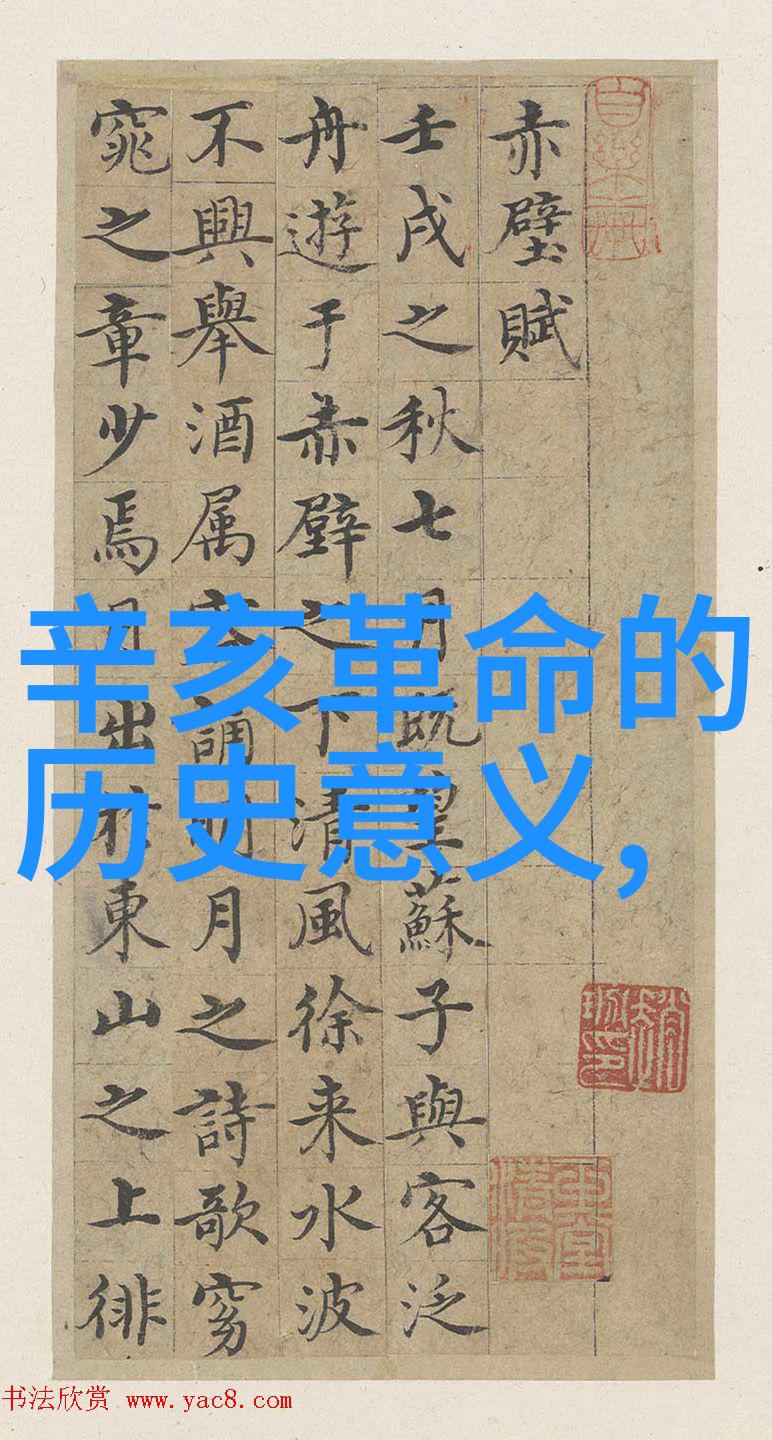 赤壁賦
壬戌之秋七月既望蘇子與客泛
舟遊于赤壁之下清風徐来水波
不興舉酒属客誦明月之詩歌窈
窕之章少焉月出於東山之上徘
辛亥革命的
历史意义,
书法欣赏 www.yac8.com